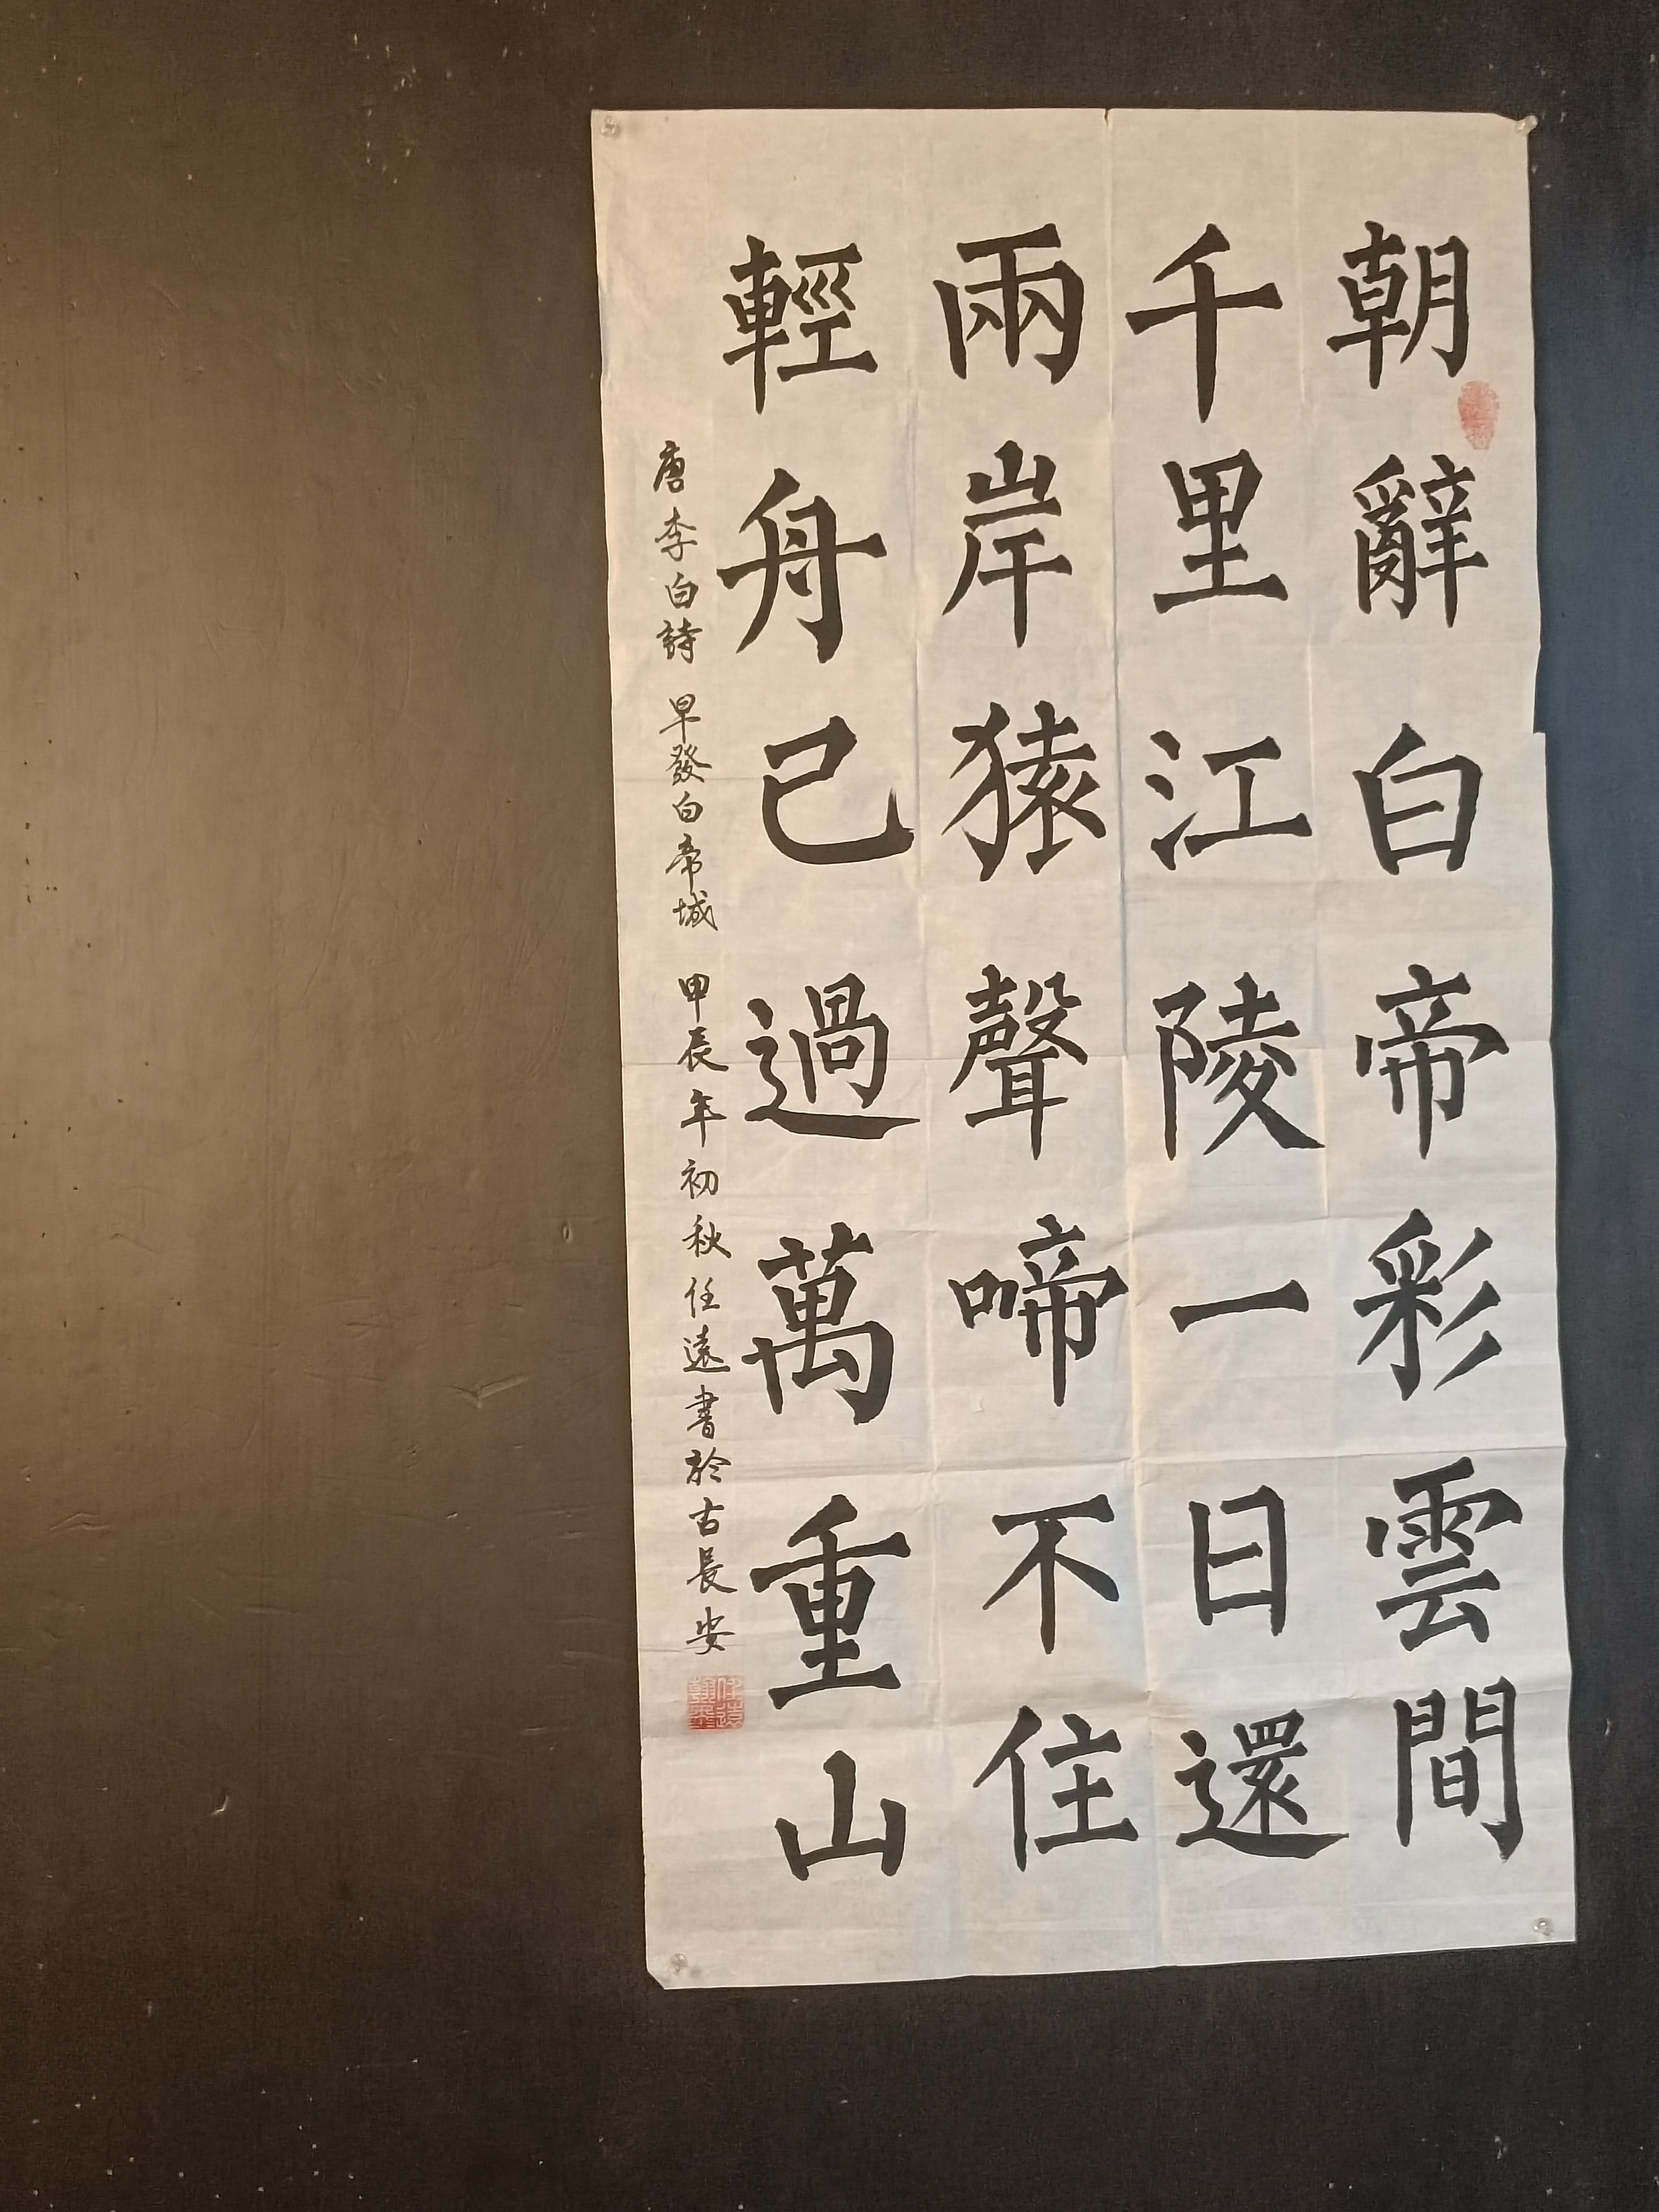 朝辭白帝彩雲間
千里江陵一日還
兩岸猿聲啼不住
輕舟已過萬重山
唐李白詩 早發白帝城 甲辰年初秋任遠書於古長安